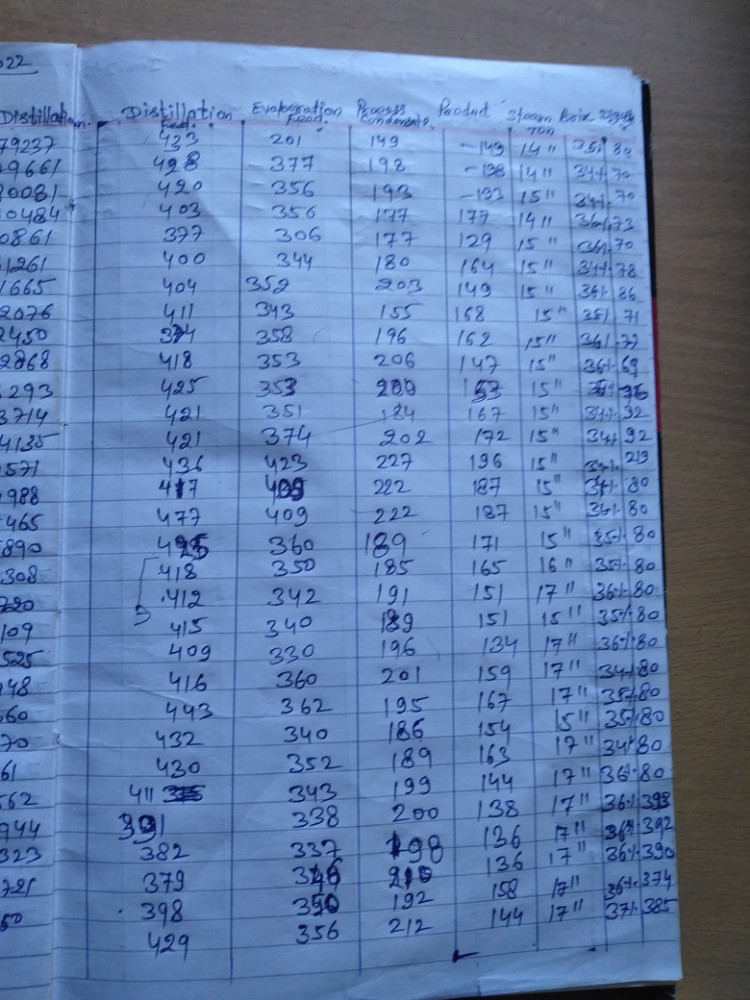 022
Distillation. Distillation Evaporation Process Product Steam Brix
Feed. Feed. Condensate. Ton
79237 423 201 149 -149 14" 35% 80
9661 428 377 198 -198 14" 34% 70
0081 420 356 193 -193 15" 34% 70
0484 403 356 177 177 14" 36% 73
0861 377 306 177 129 15" 36% 70
1261 400 344 180 164 15" 34% 78
1665 404 352 203 149 15" 36% 86
2076 411 343 155 168 15" 35% 71
2450 374 358 196 162 15" 36% 77
2868 418 353 206 147 15" 36% 69
293 425 353 200 15"
3714 421 351 184 167 15" 34% 92
4135 421 374 202 172 15" 34% 92
571 436 423 227 196 15" 34% 219
988 417 409 222 187 15" 34% 80
465 477 409 222 187 15" 36% 80
890 425 360 189 171 15" 35% 80
308 418 350 185 165 16" 35% 80
720 412 342 191 151 17" 36% 80
109 415 340 189 151 15" 35% 80
525 409 330 196 134 17" 36% 80
48 416 360 201 159 17" 34% 80
60 443 362 195 167 17" 35% 80
70 432 340 186 154 15" 35% 80
61 430 352 189 163 17" 34% 80
562 411 343 199 144 17" 36% 80
944 391 338 200 138 17" 36% 393
323 382 337 198 136 17" 36% 392
721 379 346 210 136 17" 36% 390
50 398 350 192 158 17" 36% 374
429 356 212 144 17" 37% 385